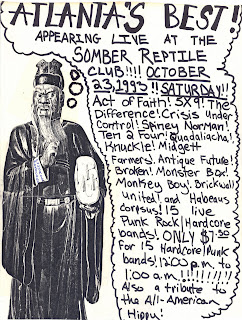 ATLANTA'S BEST!!
APPEARING LIVE AT THE
SOMBER REPTILE
CLUB!!!! OCTOBER
23,1993 !! SATURDAY!!
Act of Faith! 5X9! The
Difference! Crisis Under
Control! Spiney Norman!
Ten 2 Four! Quadaliacha!
Knuckle! Midgett
Farmers! Antique Future!
Broken! Monster Box!
Monkey Boy! Brickwall
United! and Habeaus
Corpsus! 15 live
Punk Rock/Hardcore
bands! ONLY $7.50
For 15 Hardcore/Punk
bands! 12:00 p.m. to
1:00 a.m.!!!!!!!!!
Also a tribute to
the All-American
Hippy!